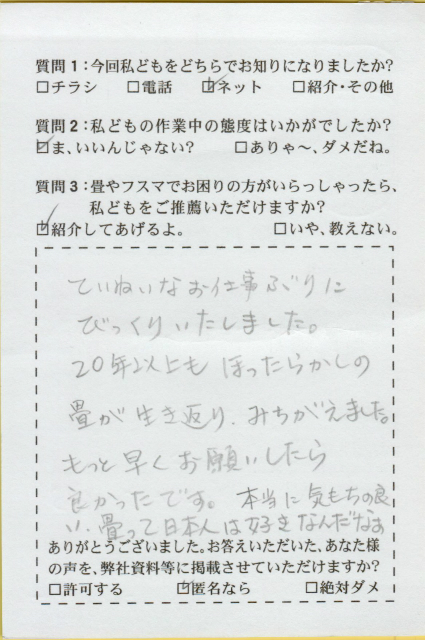 質問1:今回私どもをどちらでお知りになりましたか?
□チラシ □電話 ☑ネット □紹介・その他
質問2:私どもの作業中の態度はいかがでしたか?
☑ま、いいんじゃない? □ありゃ~、ダメだね。
質問3:畳やフスマでお困りの方がいらっしゃったら、
私どもをご推薦いただけますか?
☑紹介してあげるよ。 □いや、教えない。
ていねいなお仕事ぶりに
びっくりいたしました。
20年以上も ほったらかしの
畳が生き返り、みちがえました。
もっと早くお願いしたら
良かったです。 本当に気もちの良
い、畳って日本人は好きなんだなあ
ありがとうございました。お答えいただいた、あなた様
の声を、弊社資料等に掲載させていただけますか?
□許可する ☑匿名なら □絶対ダメ